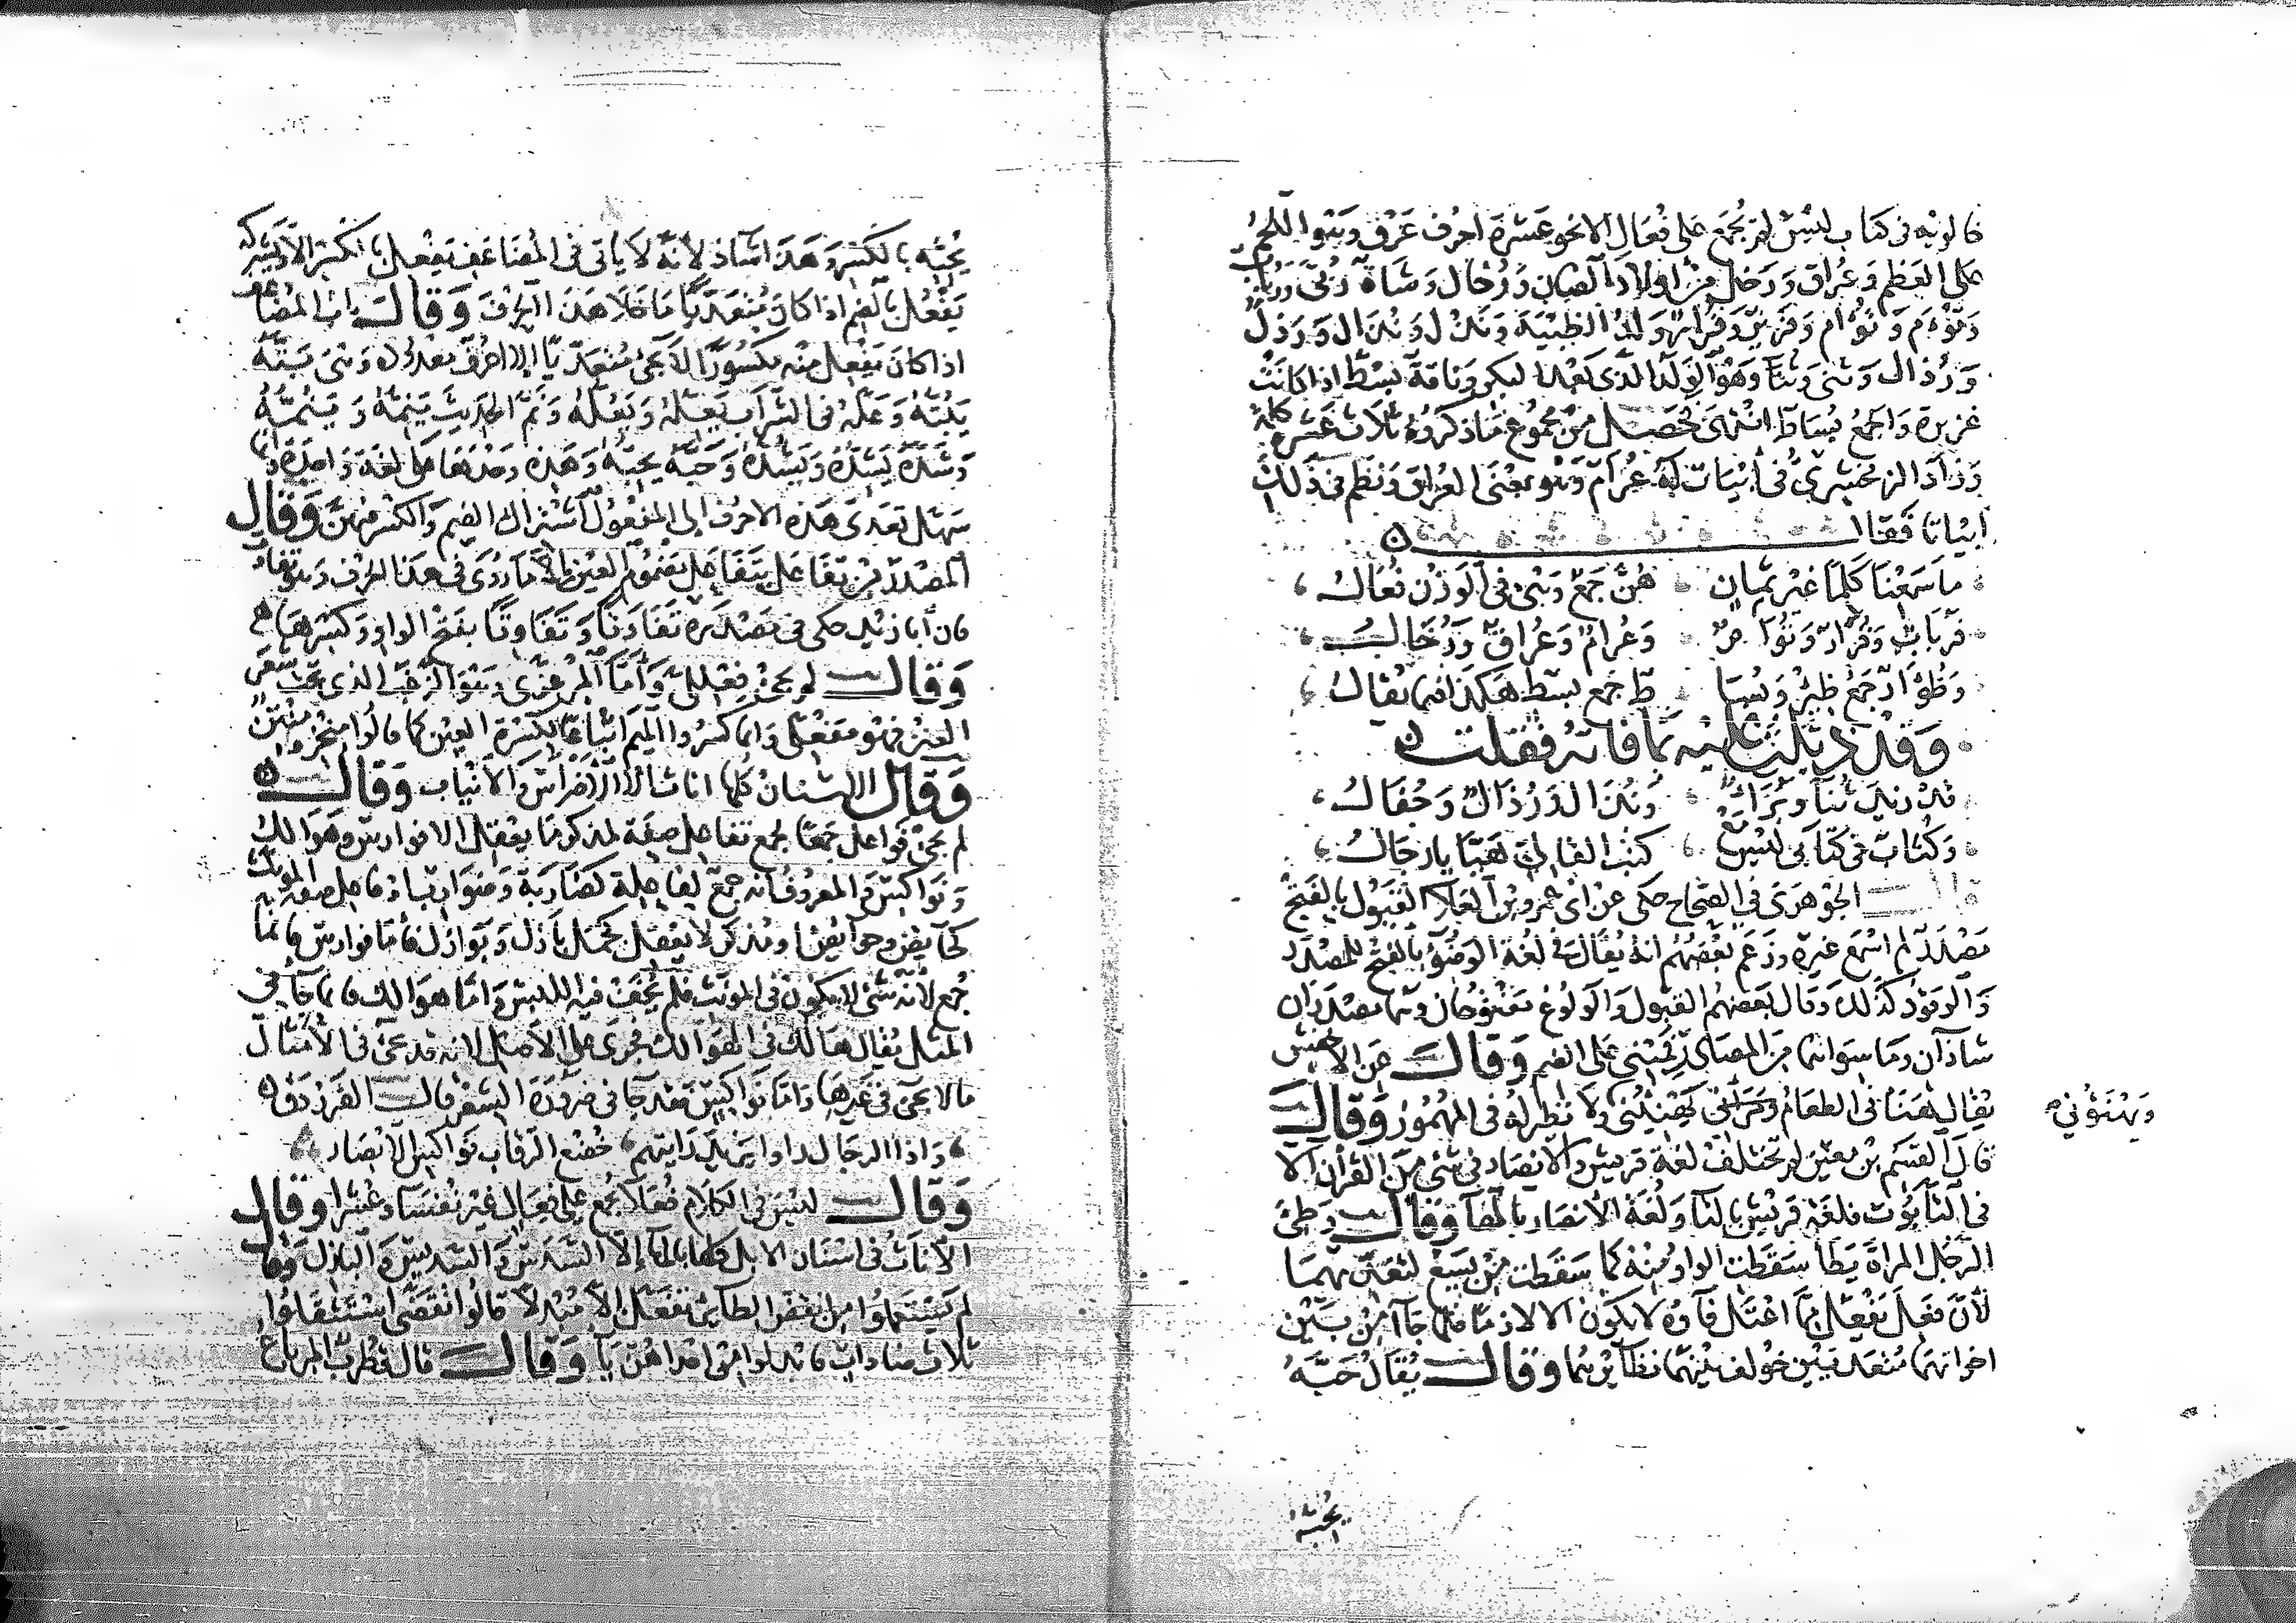 خالويه في كتاب ليس لم يجمع على فُعال الا نحو عشرة احرف عرق وهو اللحم
على العظم وعُراق ورخل من اولاد الضان ورُخال وشاة رُبّى ورُباب
وتوءم وتُؤام وفرير وفُرار ولد الظبية ونذل ونُذال ورذل
ورُذال وثنى وثناء وهو الولد الذي بعد البكر وناقة بسط اذا كانت
غزيرة والجمع بُساط انتهى فحصل من مجموع ما ذكروه ثلاث عشرة كلمة
وزاد الزمخشري في ابيات له عُرام وهو بمعنى العراق ونظم في ذلك
ابياتا فقال
ما سمعنا كلما غير ثمان هن جمع وهي في الوزن فعال
فرباب وفرار وتؤام وعرام وعراق ورخال
وظؤار جمع ظئر وبسا ط جمع بسط هكذا فيما يقال
وقد ذيلت عليه بما فاته فقلت
قد زيد ثناء وبراء ونذال ورذال وجفال
وكُثاب في كتابي ليس مع كتب القالي هيا يا رجال
قال الجوهري في الصحاح حكى عن ابي عمرو بن العلا القبول بالفتح
مصدر لم اسمع غيره وزعم بعضهم انه يقال في لغة الوضوء بالفتح للمصدر
والوقود كذلك وقال بعضهم القبول والولوع مفتوحان وهما مصدران
شاذان وما سواهما من المصادر فمبني على الضم وقال عن الاخفش
يقال هنأني الطعام ومرأني يهنئني ولا نظير له في المهموز وقال
ويهنؤني
قال القسم بن معين لم تختلف لغة قريش والانصار في شيء من القران الا
في التابوت فلغة قريش بالتا ولغة الانصار بالها وقال وطئ
الرجل المراة يطأ سقطت الواو منه كما سقطت من يسع لتعديهما
لان فعل يفعل مما اعتل فاؤه لا يكون الا لازما فلما جاآ من بين
اخواتهما متعديين خولف بهما نظائرهما وقال يقال حبه
يحبه
يحبه بالكسر وهذا شاذ لانه لا ياتي في المضاعف يفعل بالكسر الا ويشركه
يفعُل بالضم اذا كان متعديا ما خلا هذا الحرف وقال باب المضاعف
اذا كان يفعل منه مكسورا لا يجيء متعديا الا احرف معدودة وهي بته
يبته وعله في الشراب يعله ويعله ونم الحديث ينمه وينمه
وشده يشده ويشده وحبه يحبه وهذه وحدها على لغة واحدة وانما
سهل تعدي هذه الاحرف الى المفعول اشتراك الضم والكسر فيهن وقال
المصدر من تفاعل يتفاعل مضموم العين الا ما روي في هذا الحرف وهو تفاوت
فان ابا زيد حكى في مصدره تفاوَتا وتفاوِتا بفتح الواو وكسرها
وقال لم يجئ فعللي واما المرعزى وهو الزغب الذي تحت شعر
العنز فهو مفعلى وانما كسروا الميم اتباعا لكسرة العين كما قالوا منخر ومنتن
وقال الاسنان كلها اناث الا الاضراس والانياب وقال
لم يجئ فواعل جمعا لجمع تفاعل صفة لمذكر مما يعقل الا فوارس وهوالك
ونواكس والمعروف انه جمع لفاعلة كضاربة وضوارب او فاعل صفة المونث
كحائض وحوائض او مذكر لا يعقل كجمل بازل وبوازل فاما فوارس فانما
جمع لانه شيء لا يكون في المونث فلم يخف فيه اللبس واما هوالك فانما جا في
المثل يقال هالك في الهوالك فجرى على الاصل لانه قد يجئ في الامثال
مالا يجئ في غيرها واما نواكس فقد جا في ضرورة الشعر قال الفرزدق
واذا الرجال راوا يزيد رايتهم خضع الرقاب نواكس الابصار
وقال ليس في الكلام فعلا يجمع على فعال غير نفساء وعشرا وقال
الاناث في اسنان الابل كلها بالها الا السدس والسديس والبازل وقال
لم يستعملوا من انقض الطائر تفعل الا مبدلا قالوا تقضى استثقلوا
ثلاث ضادات فابدلوا من احداهن يا وقال قال قطرب المرباع